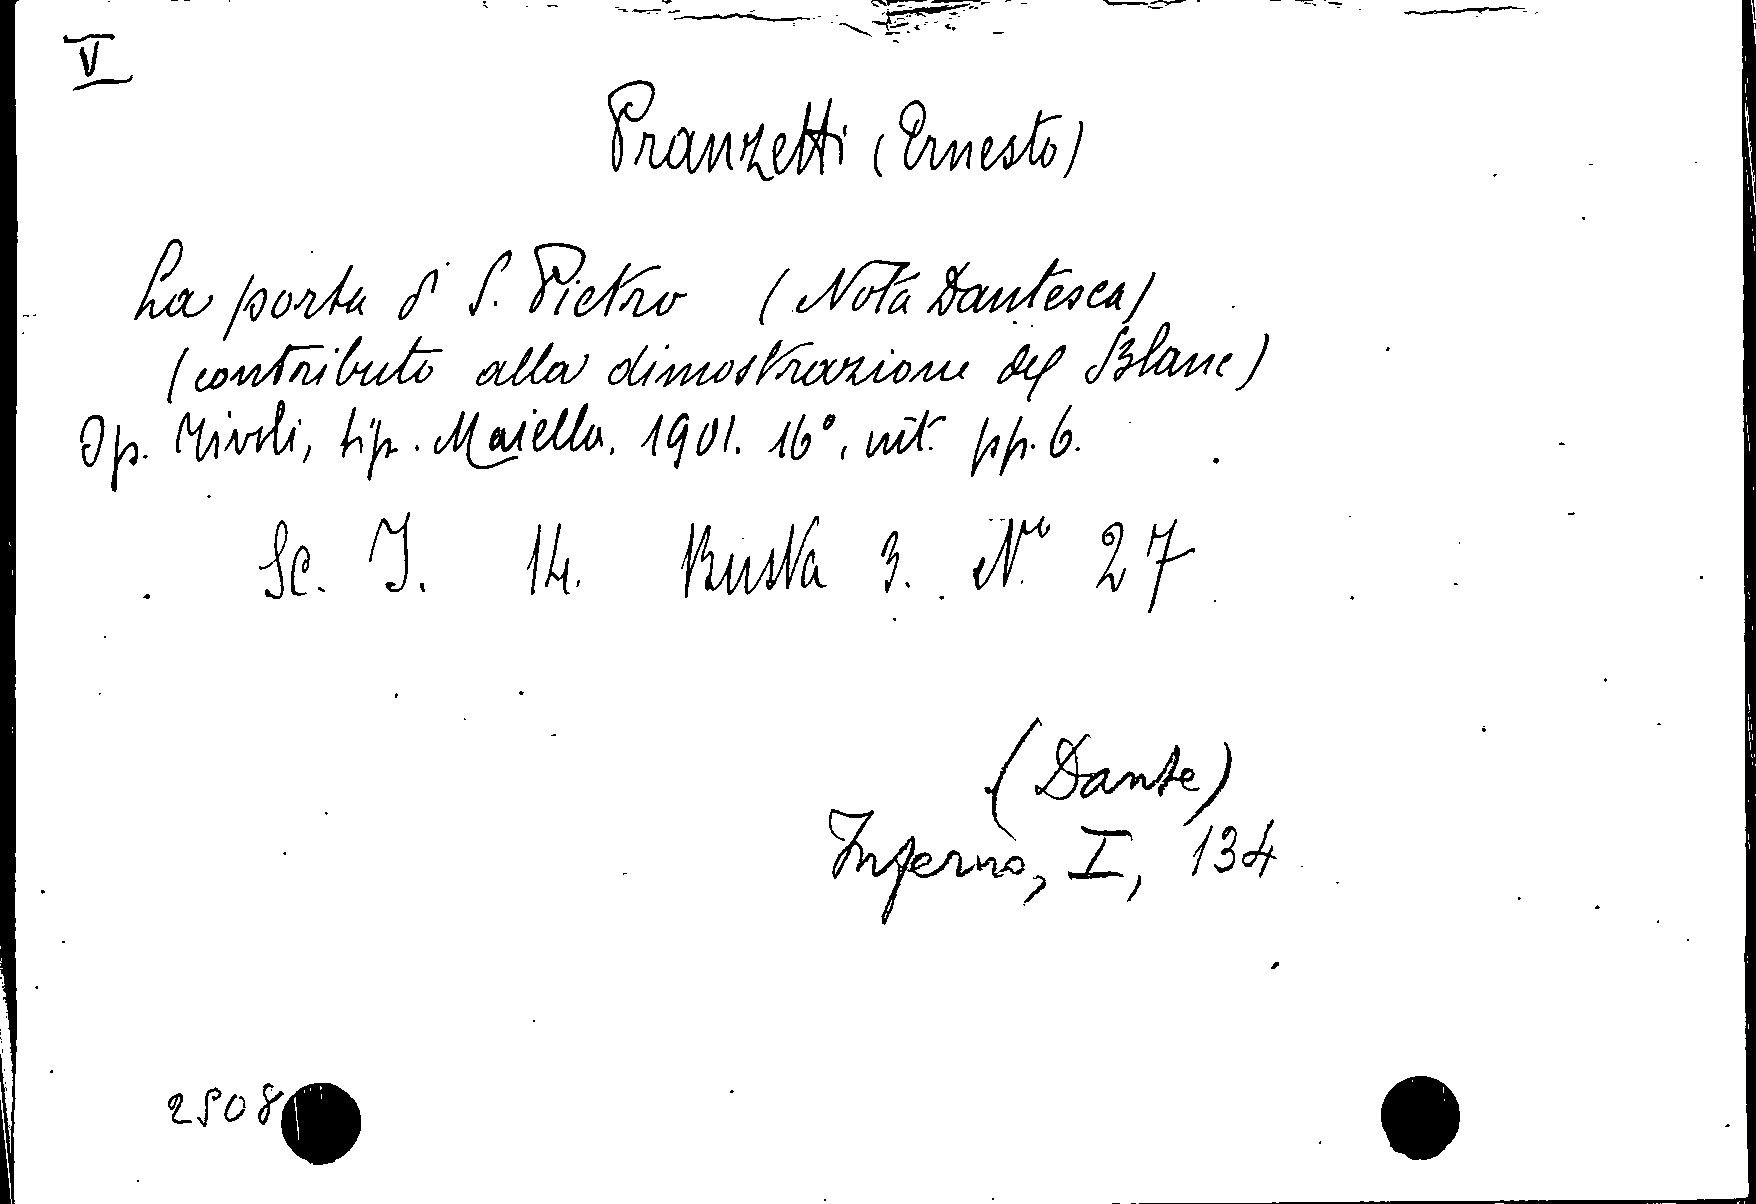 V
Pranzetti (Ernesto)
La porta di S. Pietro (Nota Dantesca)
(contributo alla dimostrazione del Blanc)
Op. Tivoli, tip. Maiella. 1901. 16°. int. pp. 6.
Sc. I. 14. Busta 3. N° 27
(Dante)
Inferno, I, 134
2508